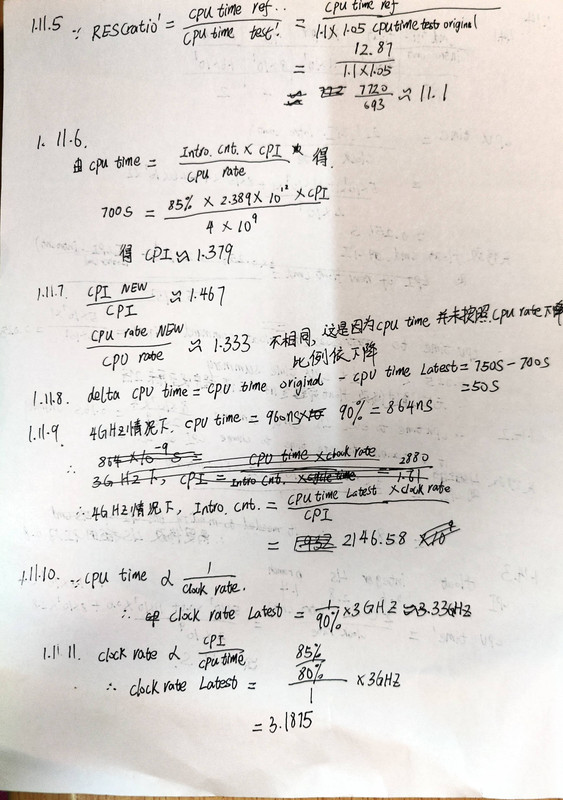 1.11.5 ∵ RESCratio' = CPU time ref.. / CPU time test! = CPU time ref / 1.1 × 1.05 CPU time test original
= 12.87 / 1.1×1.05
≈ 7720 / 693 ≈ 11.1
1. 11.6.
由 CPU time = Intro. Cnt. × CPI / CPU rate 得.
700S = 85% × 2.389 × 10¹² × CPI / 4 × 10⁹
得 CPI ≈ 1.379
1.11.7 CPI NEW / CPI ≈ 1.467
CPU rate NEW / CPU rate ≈ 1.333 不相同, 这是因为CPU time 并未按照 CPU rate 下降
比例依下降
1.11.8. delta CPU time = CPU time original - CPU time Latest = 750S - 700S
= 50S
1.11.9 4GHZ情况下. CPU time = 960ns × 90% = 864ns
∴ 864 × 10⁻⁹ S = CPU time × clock rate
3GHZ下, CPI = Intro Cnt. × = 2880 / 1.61
∴ 4GHZ情况下, Intro. Cnt. = CPU time Latest × clock rate / CPI
= 2146.58
1.11.10. ∵ CPU time ∝ 1 / clock rate.
∴ clock rate Latest = 1 / 90% × 3GHZ ≈ 3.33GHZ
1.11.11. clock rate ∝ CPI / CPU time
∴ clock rate Latest = 85% / 80% / 1 × 3GHZ
= 3.1875